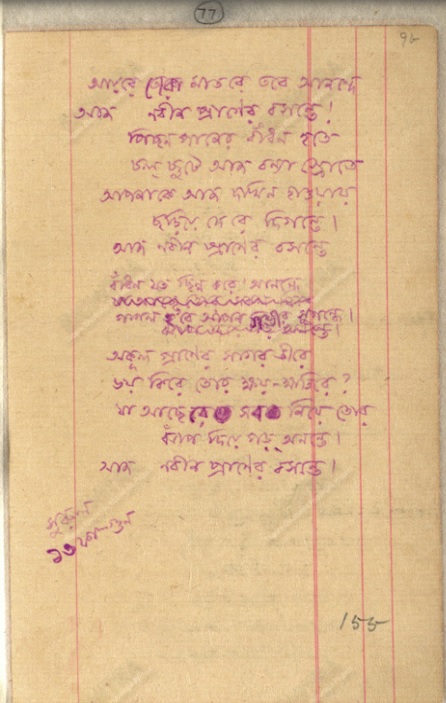 77
৭৮
আয়রে তোরা মাতরে তবে আনন্দে
আজ নবীন প্রাণের বসন্তে!
পিছন পানের বাঁধন হতে
চল্ ছুটে আজ বন্যা স্রোতে
আপনাকে আজ দখিন হাওয়ায়
ছড়িয়ে দে রে দিগন্তে।
আজ নবীন প্রাণের বসন্তে
বাঁধন যত ছিন্ন কর আনন্দে
অকূল প্রাণের সাগর তীরে
ভয় কিরে তোর ক্ষয়-ক্ষতিরে?
যা আছে রে সব নিয়ে তোর
ঝাঁপ দিয়ে পড়্ অনন্তে।
আজ নবীন প্রাণের বসন্তে।
সুরুল
১৩ ফাল্গুন
155